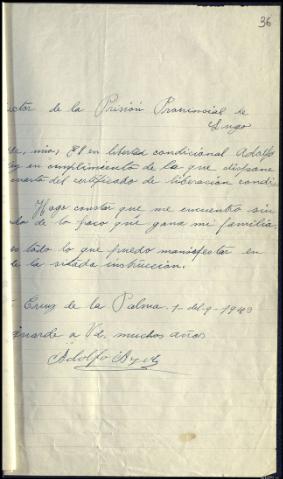 36
ector de la Prisión Provincial de
Lugo
mio, El en libertad condicional Adolfo
en cumplimiento de la que dispone
del certificado de liberación condi
Hago constar que me encuentro sin
de lo poco que gana mi familia
es todo lo que puedo manifestar en
de la citada instrucción.
Cruz de la Palma. 1- del-9-1943
guarde a Vd. muchos años
Adolfo